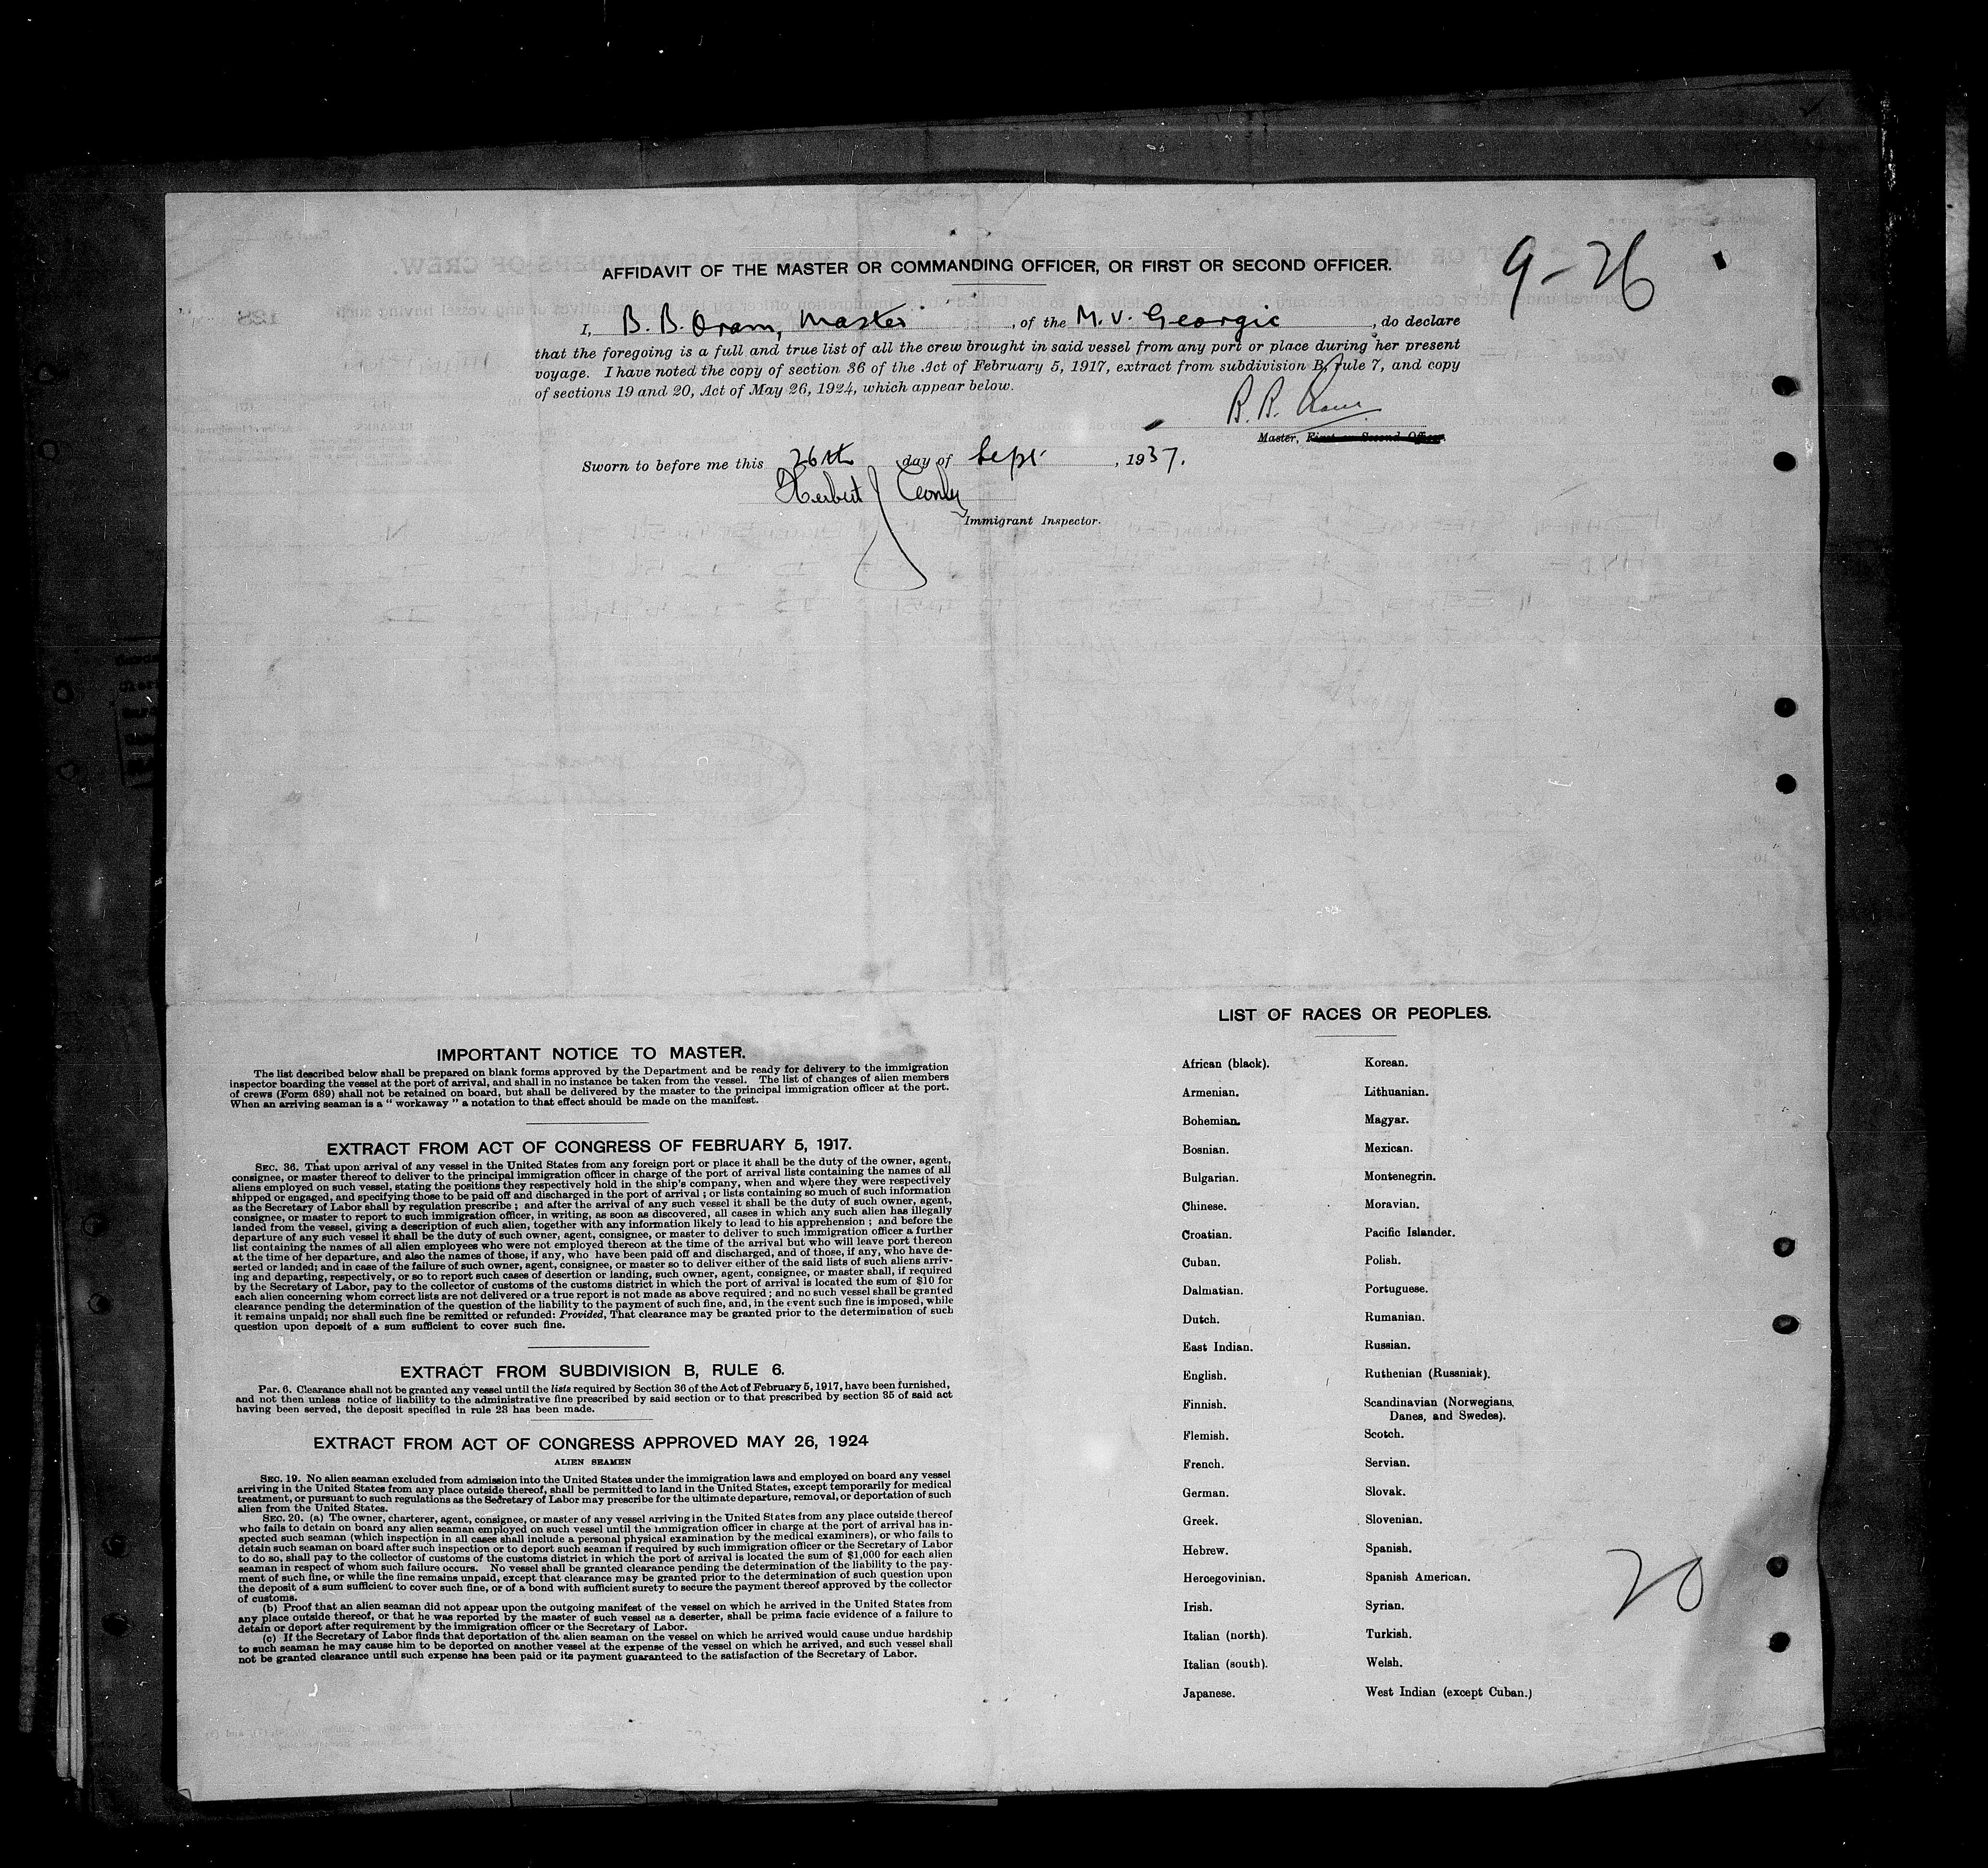 AFFIDAVIT OF THE MASTER OR COMMANDING OFFICER, OR FIRST OR SECOND OFFICER.
9-26
I, B. B. Oram, Master, of the M.V. Georgic, do declare
that the foregoing is a full and true list of all the crew brought in said vessel from any port or place during her present
voyage. I have noted the copy of section 36 of the Act of February 5, 1917, extract from subdivision B, rule 7, and copy
of sections 19 and 20, Act of May 26, 1924, which appear below.
B. B. Oram
Master, First or Second Officer.
Sworn to before me this 26th day of Sept, 1937.
Herbert J
Immigrant Inspector.
IMPORTANT NOTICE TO MASTER.
The list described below shall be prepared on blank forms approved by the Department and be ready for delivery to the immigration
inspector boarding the vessel at the port of arrival, and shall in no instance be taken from the vessel. The list of changes of alien members
of crews (Form 689) shall not be retained on board, but shall be delivered by the master to the principal immigration officer at the port.
When an arriving seaman is a " workaway " a notation to that effect should be made on the manifest.
EXTRACT FROM ACT OF CONGRESS OF FEBRUARY 5, 1917.
SEC. 36. That upon arrival of any vessel in the United States from any foreign port or place it shall be the duty of the owner, agent,
consignee, or master thereof to deliver to the principal immigration officer in charge of the port of arrival lists containing the names of all
aliens employed on such vessel, stating the positions they respectively hold in the ship's company, when and where they were respectively
shipped or engaged, and specifying those to be paid off and discharged in the port of arrival ; or lists containing so much of such information
as the Secretary of Labor shall by regulation prescribe ; and after the arrival of any such vessel it shall be the duty of such owner, agent,
consignee, or master to report to such immigration officer, in writing, as soon as discovered, all cases in which any such alien has illegally
landed from the vessel, giving a description of such alien, together with any information likely to lead to his apprehension ; and before the
departure of any such vessel it shall be the duty of such owner, agent, consignee, or master to deliver to such immigration officer a further
list containing the names of all alien employees who were not employed thereon at the time of the arrival but who will leave port thereon
at the time of her departure, and also the names of those, if any, who have been paid off and discharged, and of those, if any, who have de-
serted or landed; and in case of the failure of such owner, agent, consignee, or master so to deliver either of the said lists of such aliens arriv-
ing and departing, respectively, or so to report such cases of desertion or landing, such owner, agent, consignee, or master shall, if required
by the Secretary of Labor, pay to the collector of customs of the customs district in which the port of arrival is located the sum of $10 for
each alien concerning whom correct lists are not delivered or a true report is not made as above required ; and no such vessel shall be granted
clearance pending the determination of the question of the liability to the payment of such fine, and, in the event such fine is imposed, while
it remains unpaid; nor shall such fine be remitted or refunded: Provided, That clearance may be granted prior to the determination of such
question upon deposit of a sum sufficient to cover such fine.
EXTRACT FROM SUBDIVISION B, RULE 6.
Par. 6. Clearance shall not be granted any vessel until the lists required by Section 36 of the Act of February 5, 1917, have been furnished,
and not then unless notice of liability to the administrative fine prescribed by said section or to that prescribed by section 35 of said act
having been served, the deposit specified in rule 23 has been made.
EXTRACT FROM ACT OF CONGRESS APPROVED MAY 26, 1924
ALIEN SEAMEN
SEC. 19. No alien seaman excluded from admission into the United States under the immigration laws and employed on board any vessel
arriving in the United States from any place outside thereof, shall be permitted to land in the United States, except temporarily for medical
treatment, or pursuant to such regulations as the Secretary of Labor may prescribe for the ultimate departure, removal, or deportation of such
alien from the United States.
SEC. 20. (a) The owner, charterer, agent, consignee, or master of any vessel arriving in the United States from any place outside thereof
who fails to detain on board any alien seaman employed on such vessel until the immigration officer in charge at the port of arrival has in-
spected such seaman (which inspection in all cases shall include a personal physical examination by the medical examiners), or who fails to
detain such seaman on board after such inspection or to deport such seaman if required by such immigration officer or the Secretary of Labor
to do so, shall pay to the collector of customs of the customs district in which the port of arrival is located the sum of $1,000 for each alien
seaman in respect of whom such failure occurs. No vessel shall be granted clearance pending the determination of the liability to the pay-
ment of such fine, or while the fine remains unpaid, except that clearance may be granted prior to the determination of such question upon
the deposit of a sum sufficient to cover such fine, or of a bond with sufficient surety to secure the payment thereof approved by the collector
of customs.
(b) Proof that an alien seaman did not appear upon the outgoing manifest of the vessel on which he arrived in the United States from
any place outside thereof, or that he was reported by the master of such vessel as a deserter, shall be prima facie evidence of a failure to
detain or deport after requirement by the immigration officer or the Secretary of Labor.
(c) If the Secretary of Labor finds that deportation of the alien seaman on the vessel on which he arrived would cause undue hardship
to such seaman he may cause him to be deported on another vessel at the expense of the vessel on which he arrived, and such vessel shall
not be granted clearance until such expense has been paid or its payment guaranteed to the satisfaction of the Secretary of Labor.
LIST OF RACES OR PEOPLES.
African (black).
Armenian.
Bohemian.
Bosnian.
Bulgarian.
Chinese.
Croatian.
Cuban.
Dalmatian.
Dutch.
East Indian.
English.
Finnish.
Flemish.
French.
German.
Greek.
Hebrew.
Hercegovinian.
Irish.
Italian (north).
Italian (south).
Japanese.
Korean.
Lithuanian.
Magyar.
Mexican.
Montenegrin.
Moravian.
Pacific Islander.
Polish.
Portuguese.
Rumanian.
Russian.
Ruthenian (Russniak).
Scandinavian (Norwegians,
Danes, and Swedes).
Scotch.
Servian.
Slovak.
Slovenian.
Spanish.
Spanish American.
Syrian.
Turkish.
Welsh.
West Indian (except Cuban.)
20